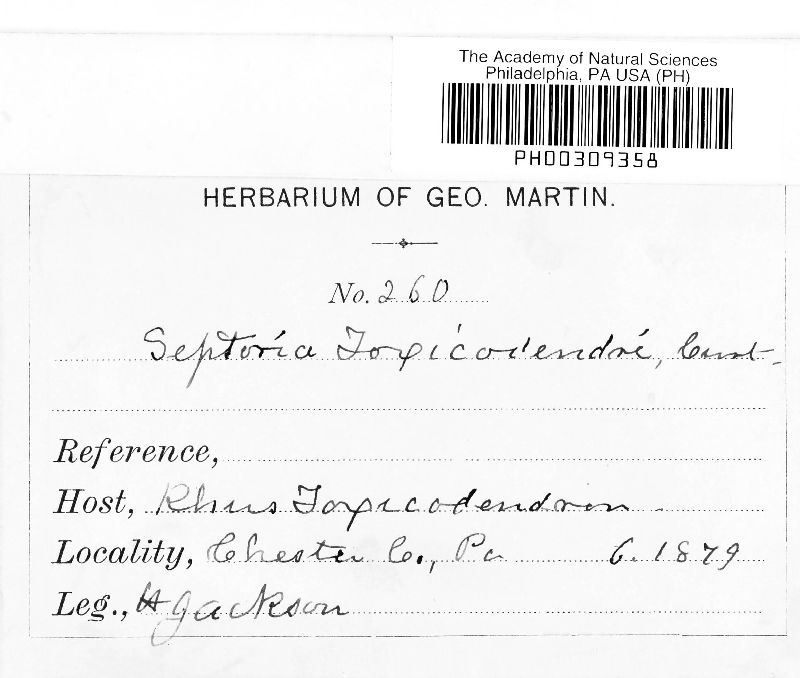 The Academy of Natural Sciences
Philadelphia, PA USA (PH)
PH00309358
HERBARIUM OF GEO. MARTIN.
No. 260
Septoria Toxicodendri, Curt.
Reference,
Host, Rhus Toxicodendron
Locality, Chester Co., Pa 6. 1879
Leg., Jackson